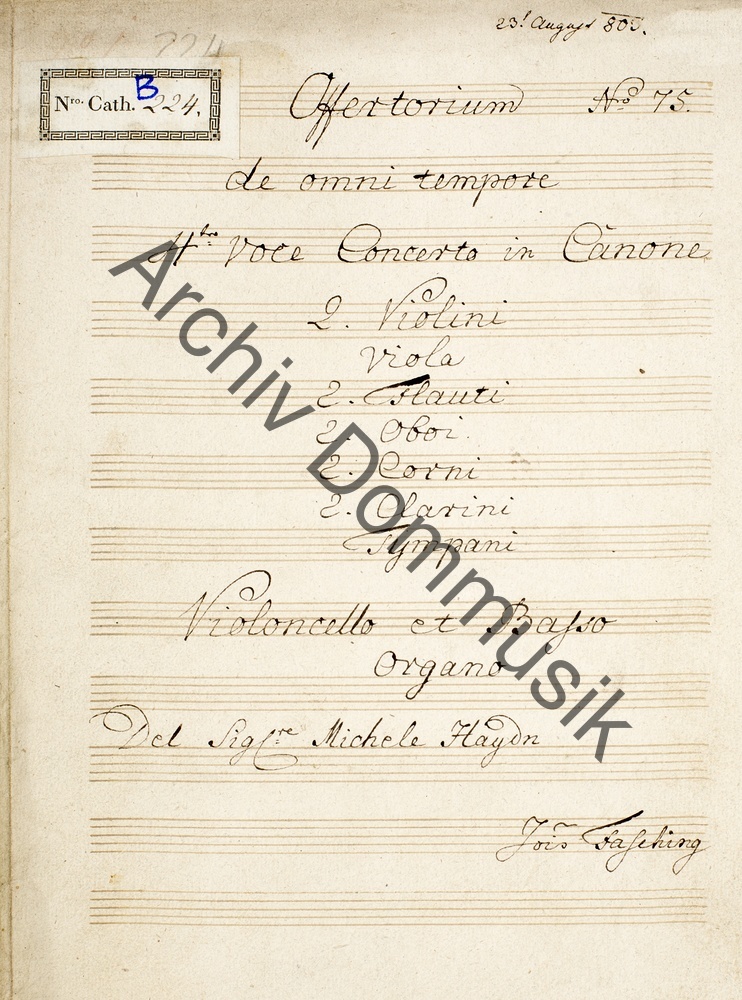 23t August 805.
224
Nro. Cath. B 224.
Offertorium Nro 75.
de omni tempore
4tro Voce Concerto in Cánone
2. Violini
Viola
2. Flauti
2. Oboi.
2. Corni
2. Clarini
Tympani
Violoncello et Baſso
Organo
Del Sigre Michele Haydn
Jois Faſching
Archiv Dommusik